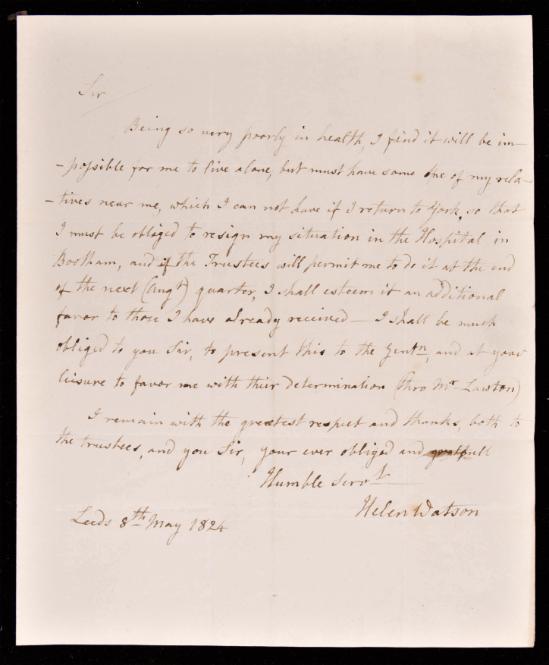 Sir
Being so very poorly in health, I find it will be im-
-possible for me to live alone, but must have some one of my rela-
-tives near me, which I can not have if I return to York, so that
I must be obliged to resign my situation in the Hospital in
Bootham, and if the Trustees will permit me to do it at the end
of the next (Augt) quarter, I shall esteem it an additional
favor to those I have already received — I shall be much
obliged to you Sir, to present this to the Gentn, and at your
leisure to favor me with their determination (thro Mr Lawton)
I remain with the greatest respect and thanks, both to
the trustees, and you Sir, your ever obliged and gratefull
Humble Servt
Helen Watson
Leeds 8th May 1824